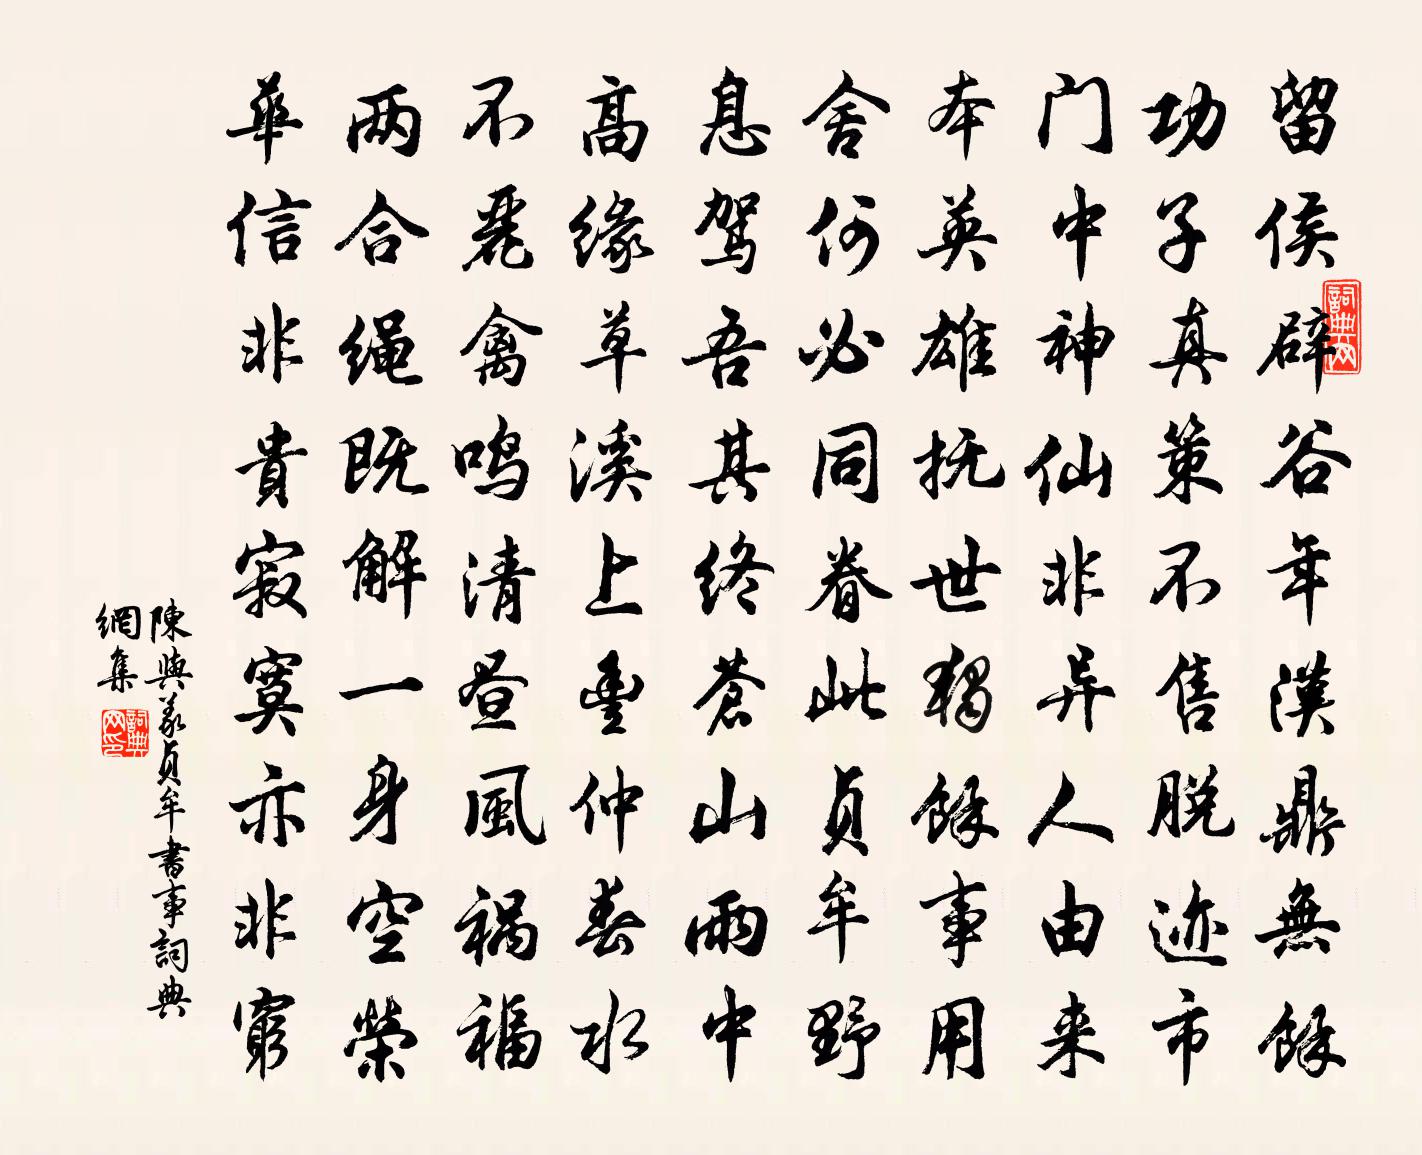 留侯辟谷年漢鼎無餘
功子真策不售脱迹市
门中神仙非异人由来
本英雄抚世独餘事用
舍何必同眷此贞牟野
息驾吾其终苍山雨中
高缘草溪上豊仲春水
不麗禽鸣清昼風祸福
两合绳既解一身空榮
華信非貴寂寞亦非窮
陳與义贞牟書事詞典
網集
詞典网
詞典网印